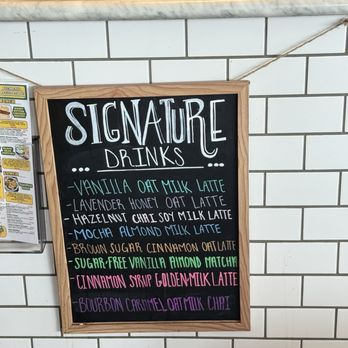 SIGNATURE
DRINKS
-VANILLA OAT MILK LATTE
-LAVENDER HONEY OAT LATTE
-HAZELNUT CHAI SOY MILK LATTE
-MOCHA ALMOND MILK LATTE
-BROWN SUGAR CINNAMON OAT LATTE
-SUGAR-FREE VANILLA ALMOND MATCHA
-CINNAMON SYRUP GOLDEN-MILK LATTE
-BOURBON CARAMEL OAT MILK CHAI